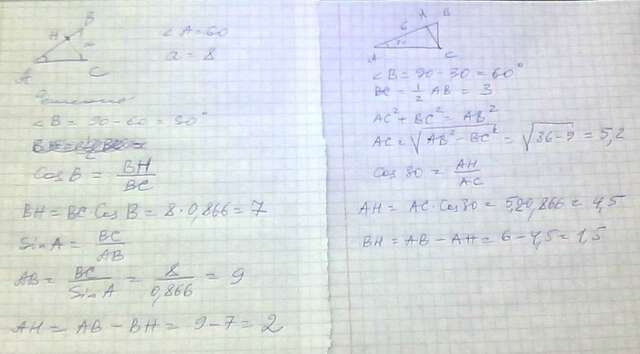 B
H
A
C
∠A=60
a = 8
Решение
∠B = 90 - 60 = 30°
Cos B = BH/BC
BH = BC Cos B = 8·0,866 = 7
Sin A = BC/AB
AB = BC/Sin A = 8/0,866 = 9
AH = AB - BH = 9 - 7 = 2
6
H
B
A
C
∠B = 90 - 30 = 60°
BC = 1/2 AB = 3
AC² + BC² = AB²
AC = √AB² - BC² = √36-9 = 5,2
Cos 30 = AH/AC
AH = AC·Cos30 = 5,2·0,866 = 4,5
BH = AB - AH = 6 - 4,5 = 1,5